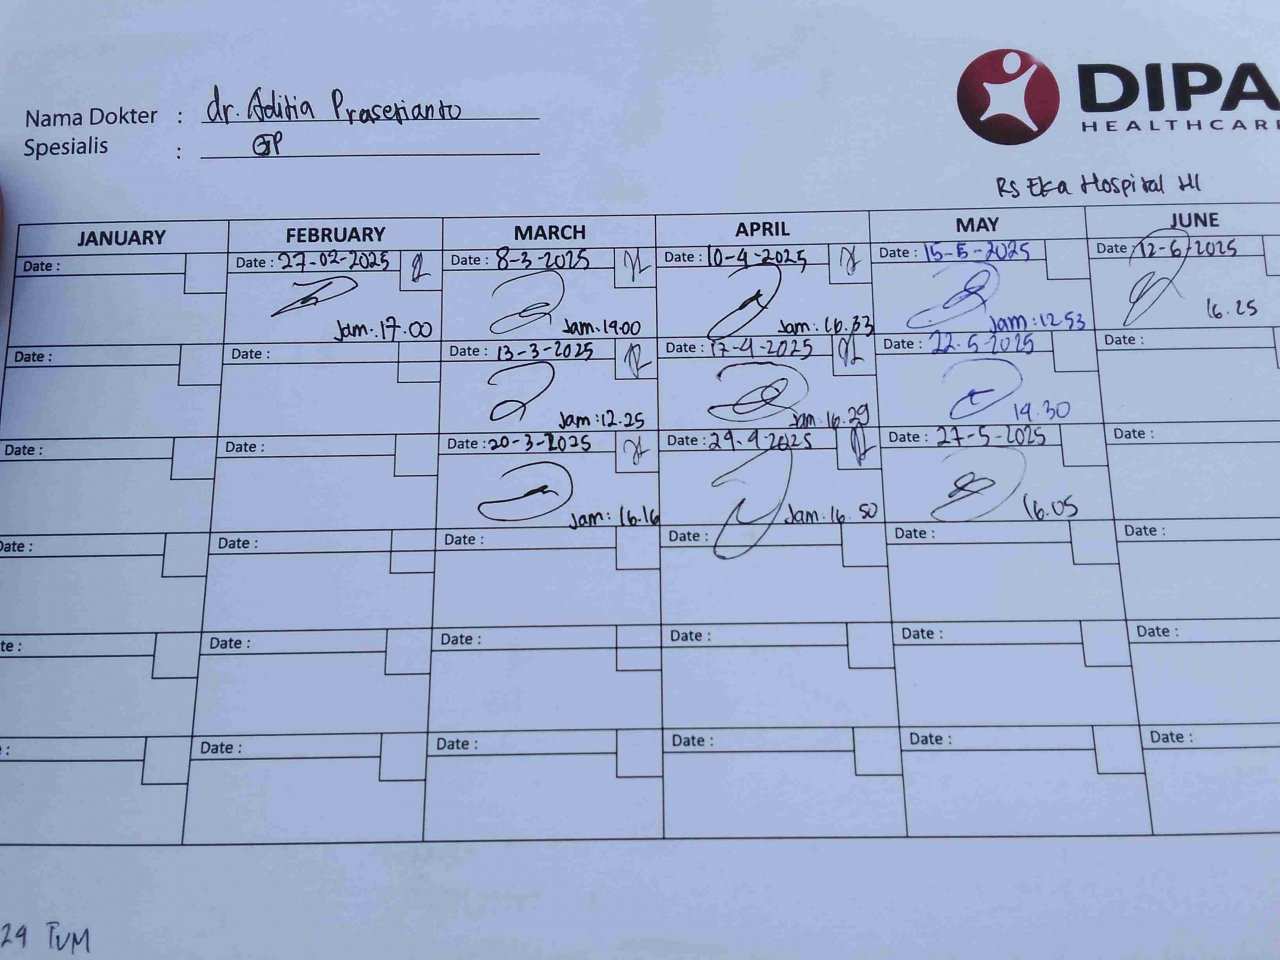 Nama Dokter : dr. Aditia Prasetianto
Spesialis : GP
DIPA
HEALTHCARE
Rs Eka Hospital
JANUARY FEBRUARY MARCH APRIL MAY JUNE
Date : Date : 27-02-2025 Date : 8-3-2025 Date : 10-4-2025 Date : 15-5-2025 Date : 12-6-2025
Jam: 17.00 Jam: 19.00 Jam: 16.33 Jam: 12.53 16.25
Date : Date : Date : 13-3-2025 Date : 17-4-2025 Date : 22-5-2025 Date :
Jam: 12.25 Jam 16.29 19.30
Date : Date : Date : 20-3-2025 Date : 29-4-2025 Date : 27-5-2025 Date :
Jam: 16.16 Jam. 16.50 16.05
Date : Date : Date : Date : Date : Date :
te : Date : Date : Date : Date : Date :
: Date : Date : Date : Date : Date :
29 TVM